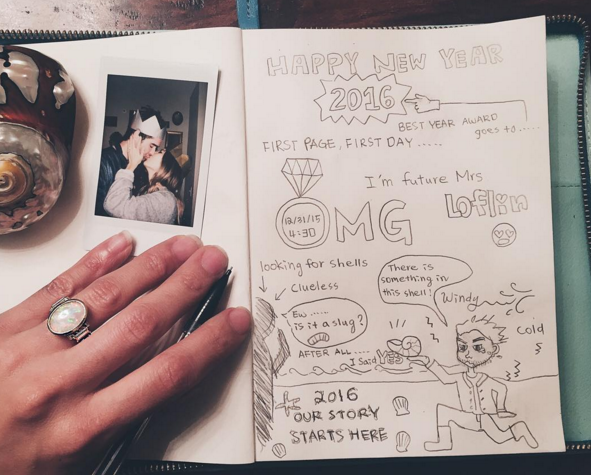 HAPPY NEW YEAR
2016
BEST YEAR AWARD
goes to.....
FIRST PAGE, FIRST DAY.....
I'm future Mrs
Loflin
12/31/15
4:30
OMG
looking for shells
Clueless
There is
something in
this shell!
Windy
Ew.....
is it a slug?
cold
AFTER ALL....
I said YES
2016
OUR STORY
STARTS HERE